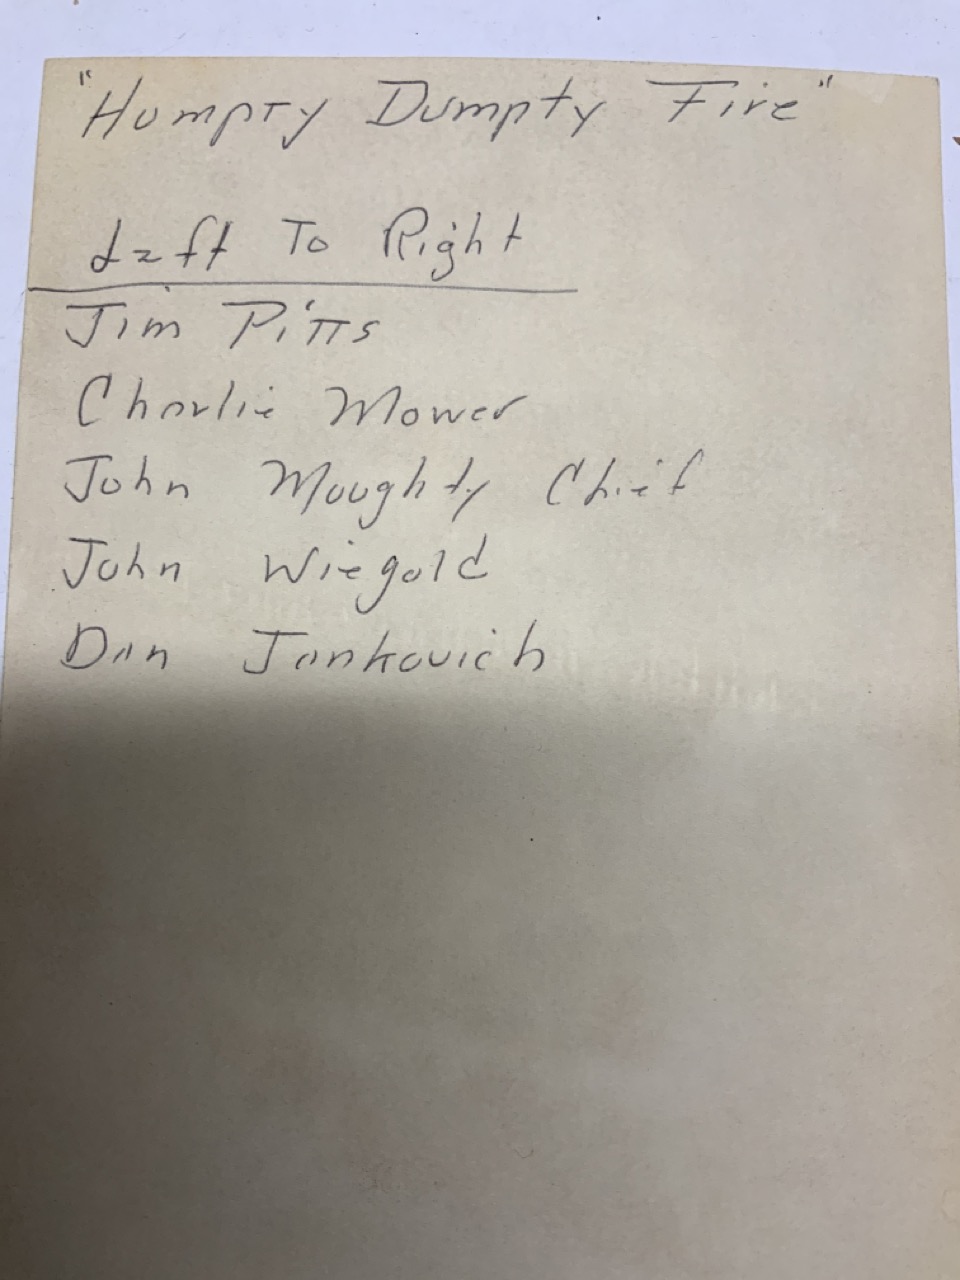 "Humpty Dumpty Fire"
Left To Right
Jim Pitts
Charlie Mower
John Moughty Chief
John Wiegold
Dan Jankovich